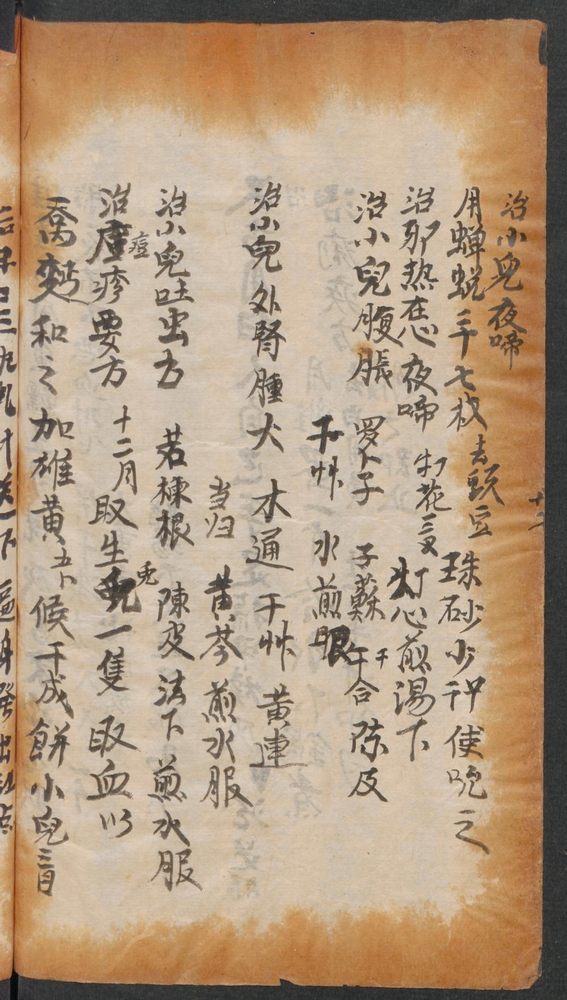 治小兒夜啼
用蝉蜕三十七枚 去頭足 珠砂少許 使吃之
治邪热 夜啼 灯花三 灯心煎湯下
治小兒腹脹 罗卜子 子蘇 干合 陈皮
干艸 水煎服
治小兒外腎腫大 木通 干艸 黄連
当归 黄芩 煎水服
治小兒吐虫方 苦楝根 陳皮 法下 煎水服
治痘疹要方 十二月取生兎一隻 取血以
喬麵和之 加雄黄 候干成餅 小兒三日